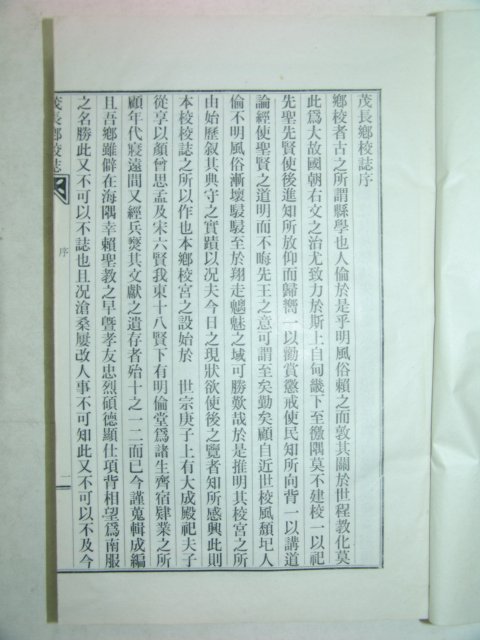 茂長鄉校誌序
鄉校者古之所謂縣學也人倫於是乎明風俗賴之而敦其關於世程教化莫
此爲大故國朝右文之治尤致力於斯上自甸畿下至徼隅莫不建校一以祀
先聖先賢使後進知所放仰而歸嚮一以勸賞懲戒使民知所向背一以講道
論經使聖賢之道明而不晦先王之意可謂至矣勤矣顧自近世校風頹圮人
倫不明風俗漸壞駸駸至於翔走魍魅之域可勝歎哉於是推明其校宮之所
由始歷叙其典守之實蹟以况夫今日之現狀欲使後之覽者知所感興此則
本校校誌之所以作也本鄉校宮之設始於 世宗庚子上有大成殿祀夫子
從享以顏曾思孟及宋六賢我東十八賢下有明倫堂爲諸生齊宿肄業之所
顧年代寖遠間又經兵燹其文獻之遺存者殆十之一二而已今謹蒐輯成編
且吾鄉雖僻在海隅幸賴聖教之早曁孝友忠烈碩德顯仕項背相望爲南服
之名勝此又不可以不誌也且况滄桑屢改人事不可知此又不可以不及今
茂長鄉校誌
序
一